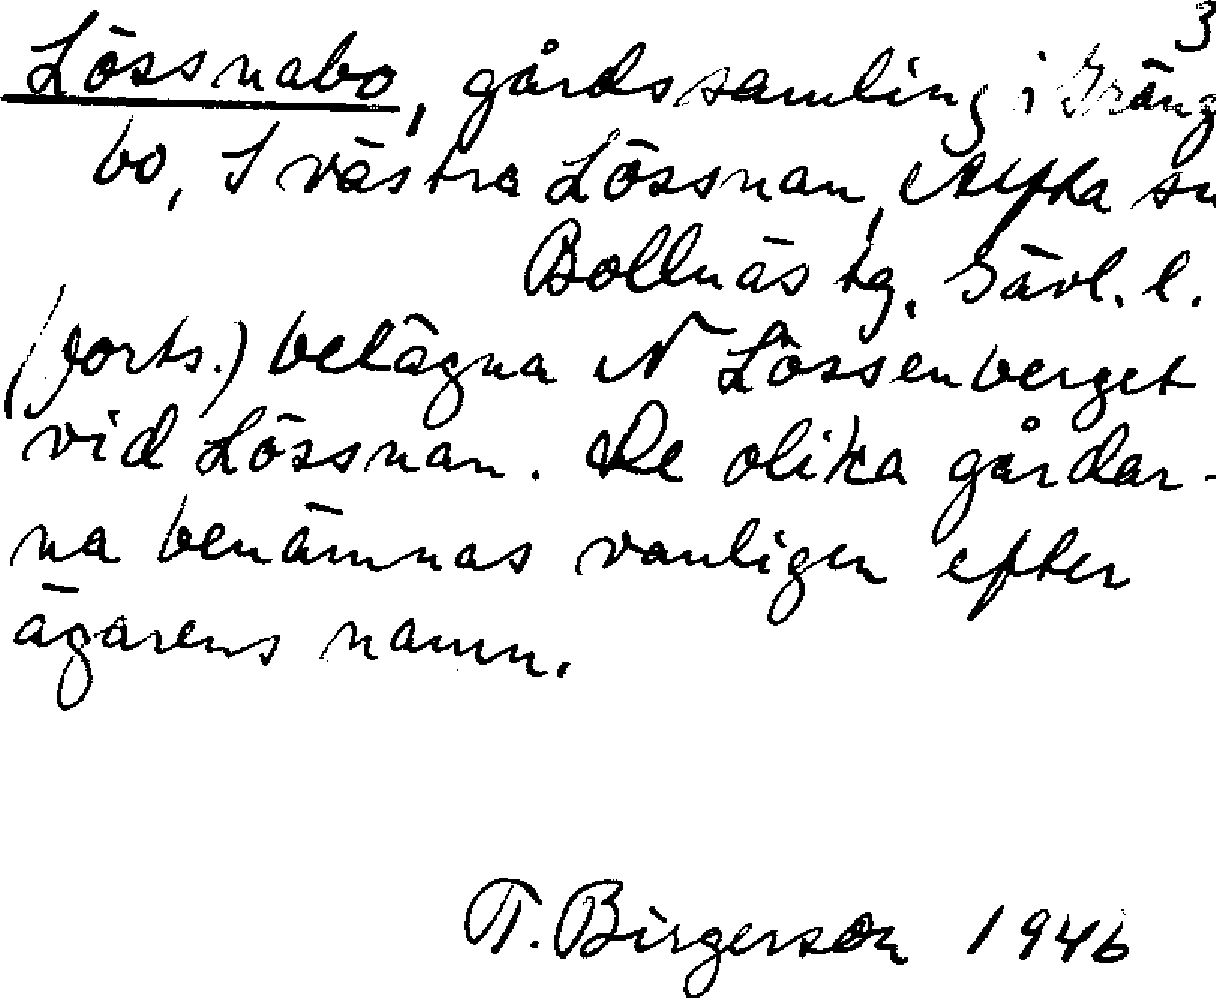 3
Lössnabo, gårdssamling i Gräng
bo, I västra Lössnan, Alfta sn
Bollnäs tg. Gävl. l.
(forts.) belägna N Lössenberget
vid Lössnan. De olika gårdar-
na benämnas vanligen efter
ägarens namn.
T. Birgerson 1946